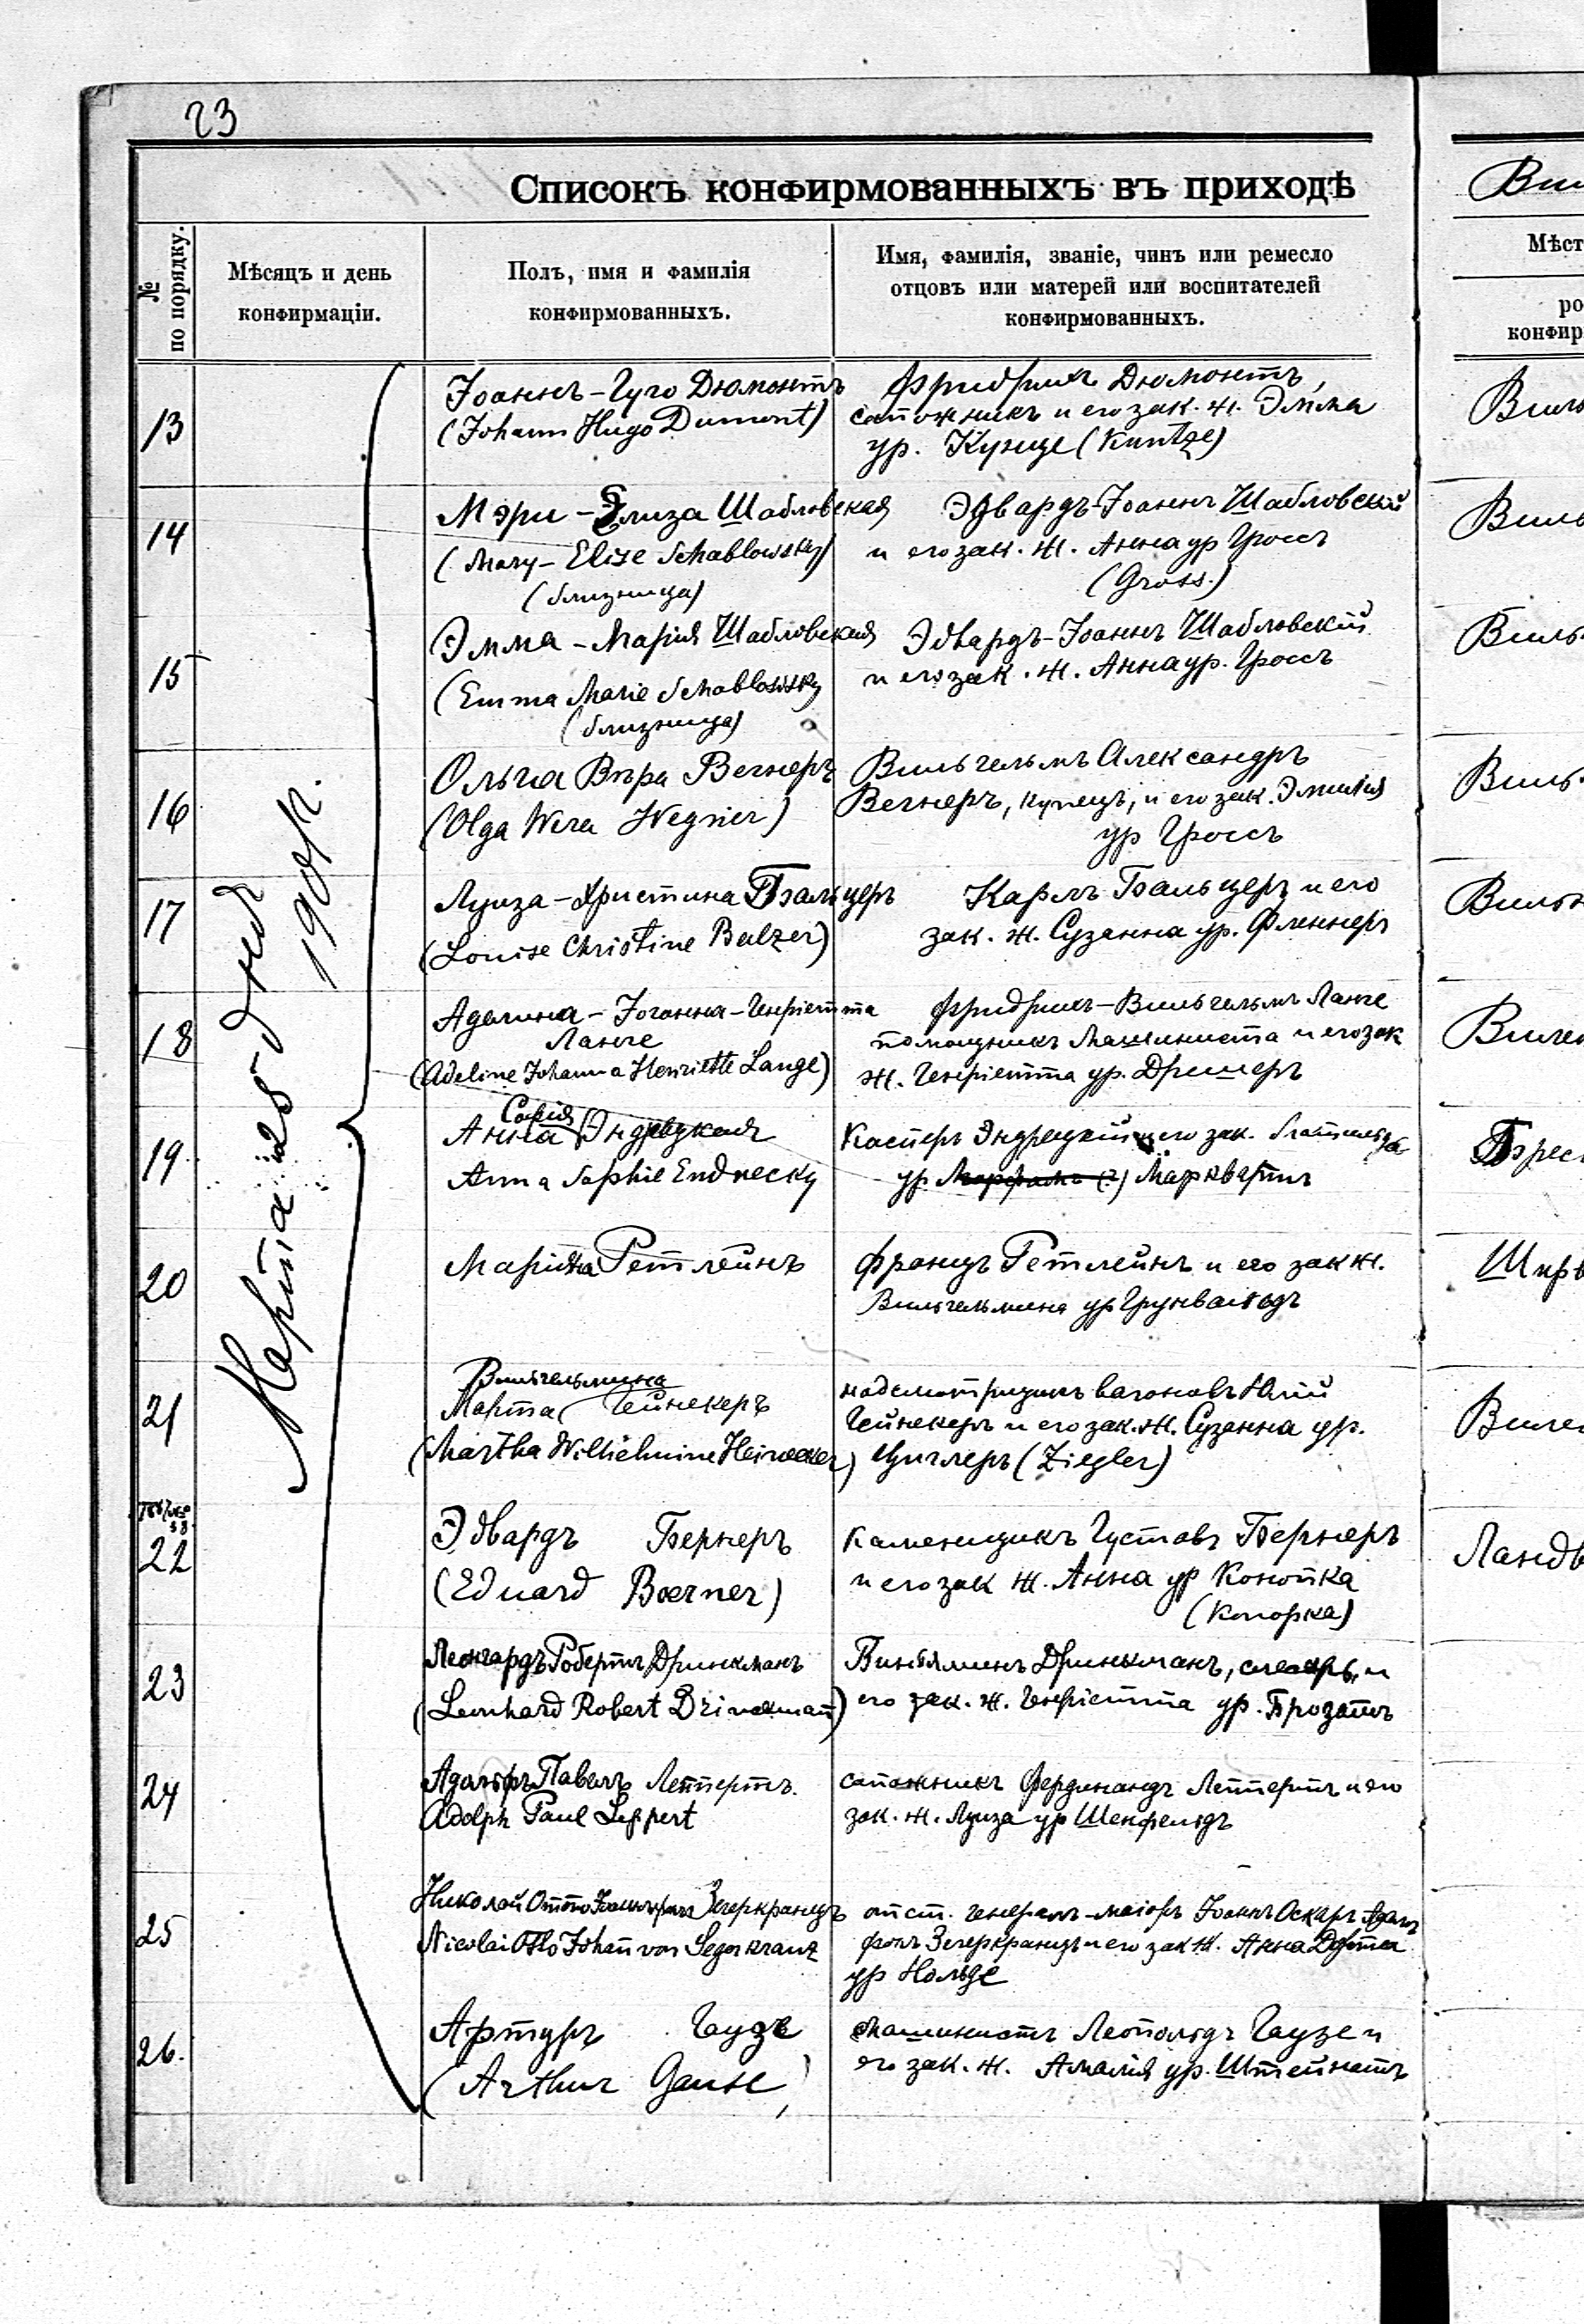 23
Списокъ конфирмованныхъ въ приходѣ
№ по порядку.
Мѣсяцъ и день
конфирмаціи.
Полъ, имя и фамилія
конфирмованныхъ.
Имя, фамилія, званіе, чинъ или ремесло
отцовъ или матерей или воспитателей
конфирмованныхъ.
Марта 28 дня
190
13
Іоаннъ-Гуго Дюмонтъ
(Johann Hugo Dumont)
Фридрихъ Дюмонтъ,
сапожникъ и его зак. ж. Эмма
ур. Кунце (Kuntze)
14
Мэри-Элиза Шабловская
(Mary-Elise Schablowsky)
(близница)
Эдвардъ-Іоаннъ Шабловскій
и его зак. ж. Анна ур Гроссъ
(Gross.)
15
Эмма-Марія Шабловская
(Emma Marie Schablowsky
(близница)
Эдвардъ-Іоаннъ Шабловскій
и его зак. ж. Анна ур. Гроссъ
16
Ольга Вѣра Вегнеръ
(Olga Wera Wegner)
Вильгельмъ Александръ
Вегнеръ, купецъ, и его зак. Эмилія
ур Гроссъ
17
Луиза-Христина Бальцеръ
(Louise Christine Balzer)
Карлъ Бальцеръ и его
зак. ж. Сузанна ур. Фленнеръ
18
Аделина-Іоганна-Генріетта
Ланге
(Adeline Johanna Henriette Lange)
Фридрихъ-Вильгельмъ Ланге
помощникъ машиниста и его зак
ж. Генріетта ур. Дрешеръ
19
Софія
Анна Эндрецкая
Anna Sophie Endrecky
Касперъ Эндрецкій и его зак.
ур Марквартъ
20
Ретлейнъ
Францъ Ретлейнъ и его зак ж.
Вильгельмина ур Грунвальдъ
21
Вильгельмина
Марта Гейнекеръ
(Martha Wilhelmine Heinecker)
надсмотрщикъ вагоновъ Юлій
Гейнекеръ и его зак. ж. Сузанна ур.
Циглеръ (Ziegler)
22
Эдвардъ Бернеръ
(Eduard Boerner)
каменщикъ Густавъ Бернеръ
и его зак ж. Анна ур Конопка
(Konopka)
23
Леонгардъ Робертъ Дринкманъ
(Leonhard Robert Drinckmann)
Виніяминъ Дринкманъ, слесарь, и
его зак. ж. Генріетта ур. Брозатъ
24
Адольфъ Павелъ Леппертъ.
Adolph Paul Leppert
сапожникъ Фердинандъ Леппертъ и его
зак. ж. Луиза ур Шенфельдъ
25
Николай Отто Іоаннъ фонъ Зегеркранцъ
Nicolai Otto Johann von Segerkranz
отст. генералъ-маіоръ Іоаннъ Оскаръ
фонъ Зегеркранцъ и его зак ж. Анна
ур Нольде
26.
Артуръ Гаузе
(Arthur Gause)
машинистъ Леопольдъ Гаузе и
его зак. ж. Амалія ур. Штейнатъ
Мѣст
ро
конфир